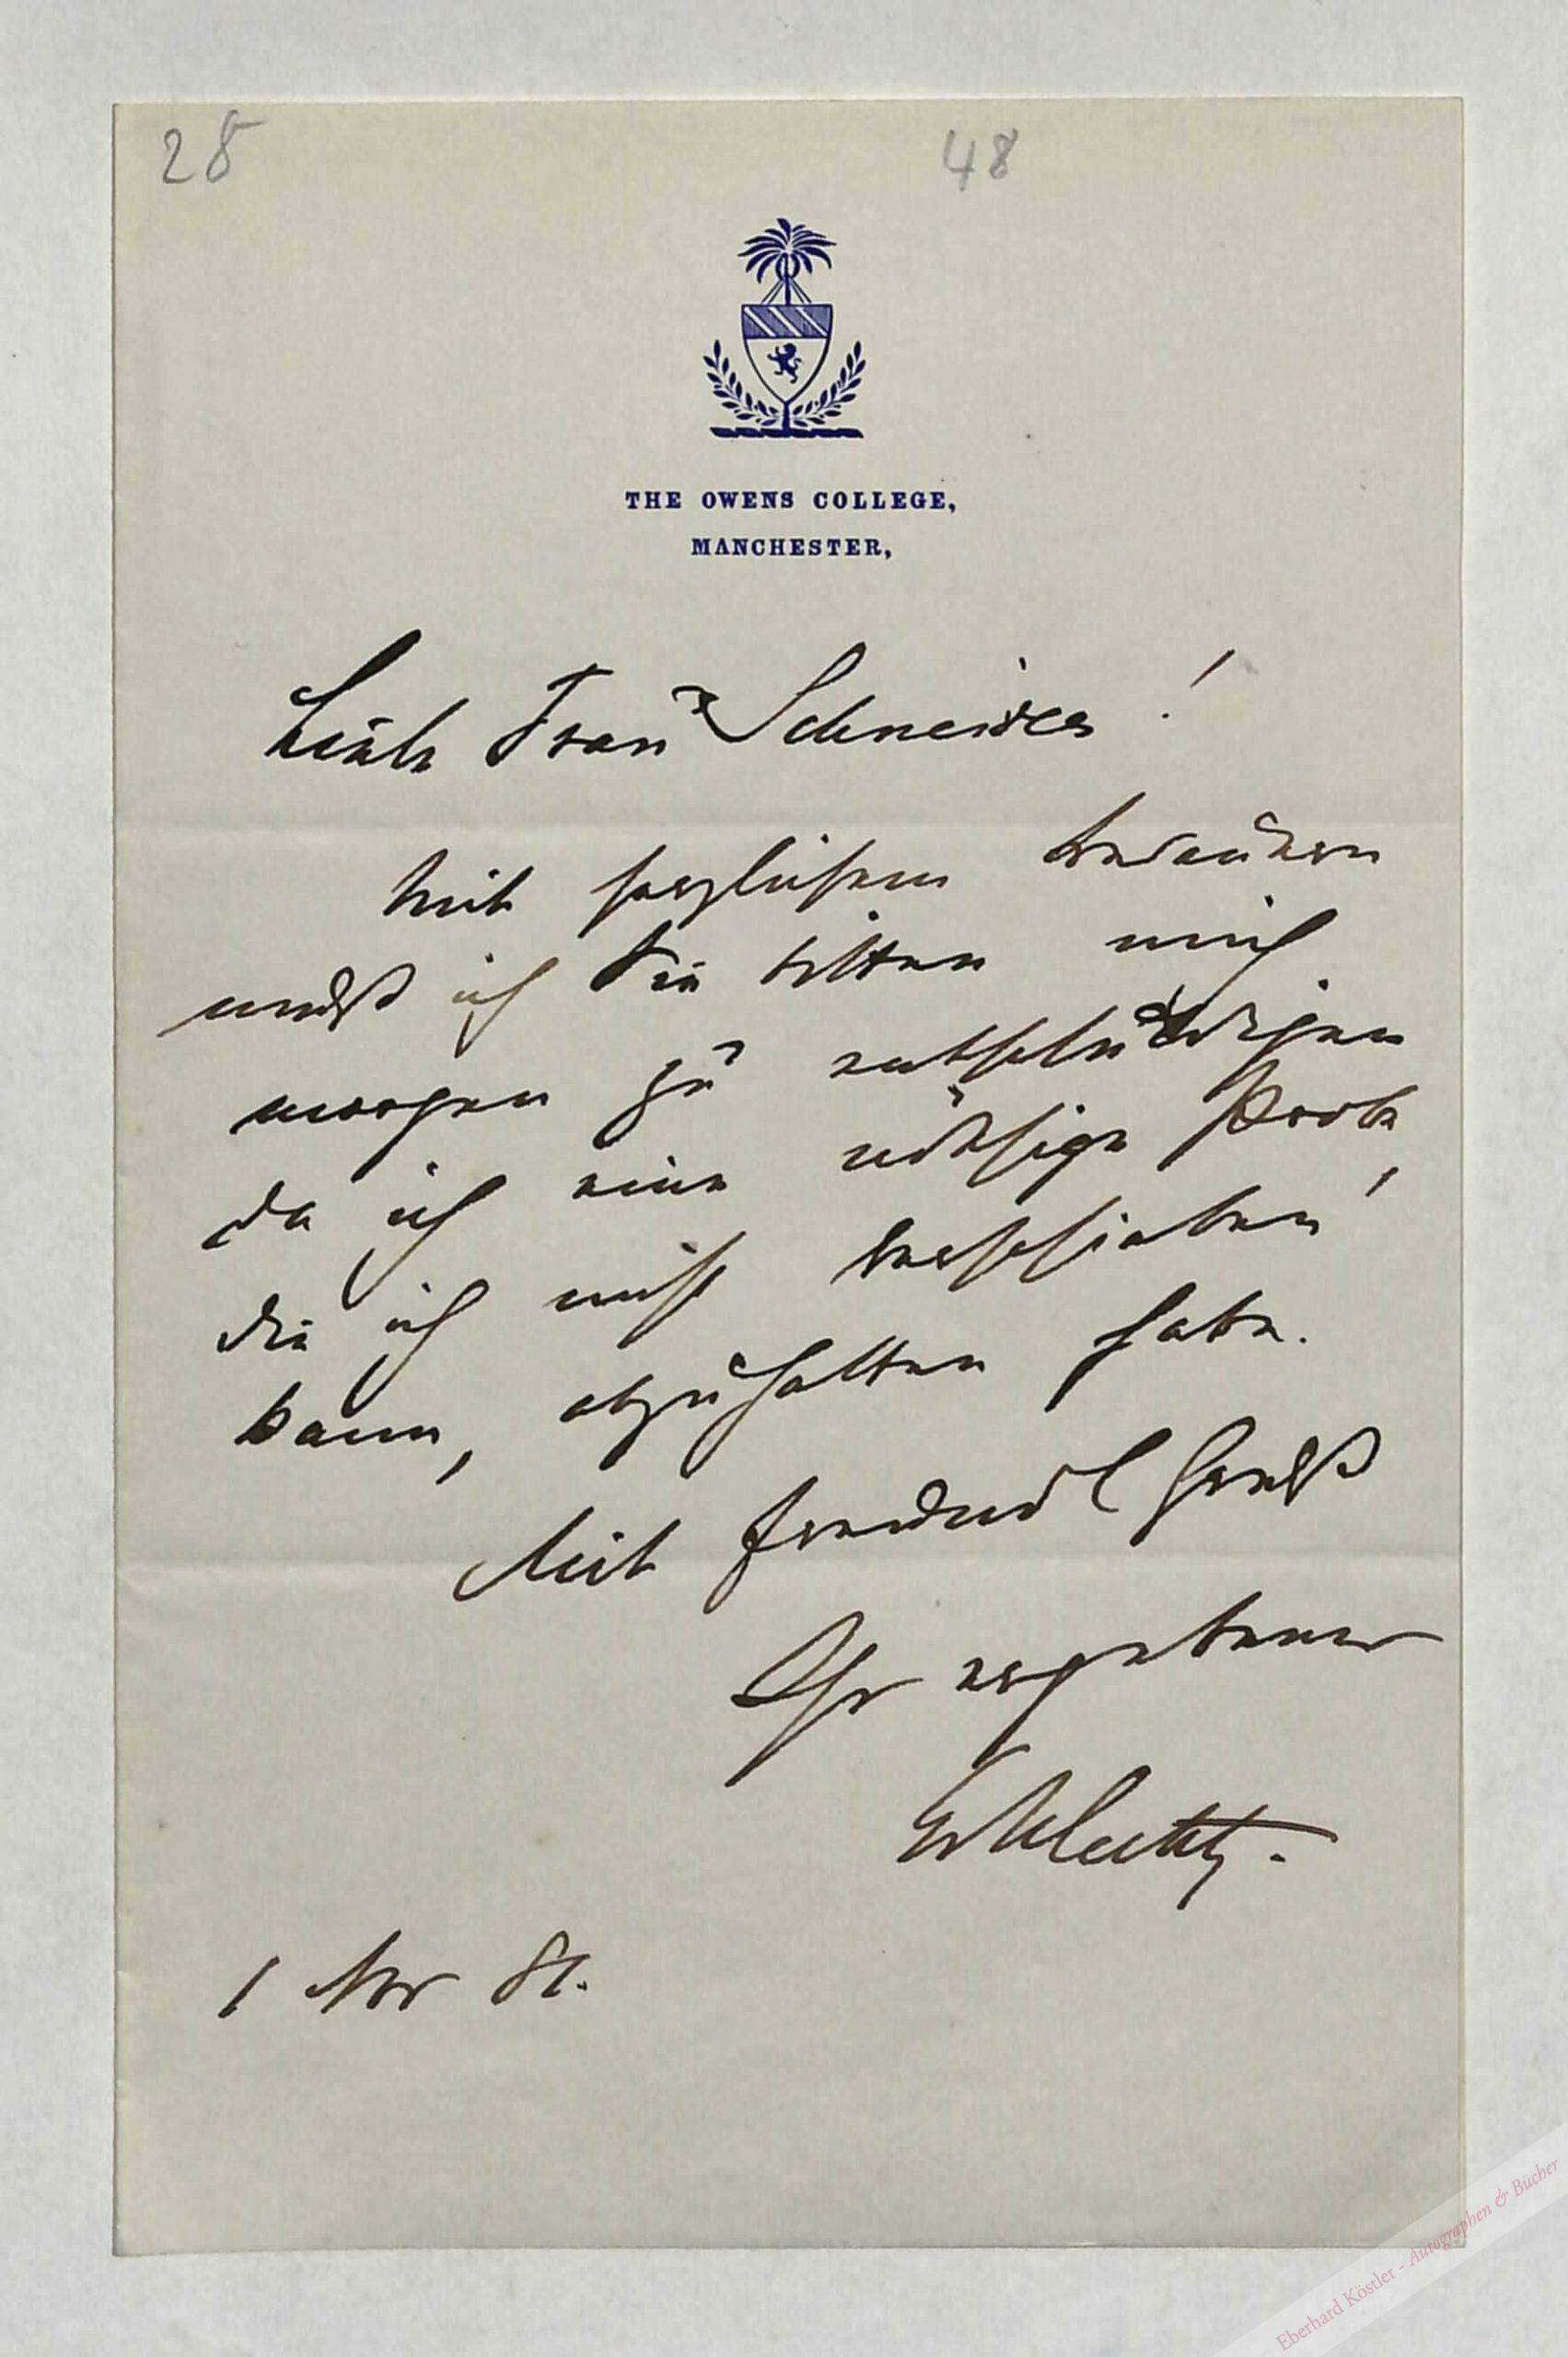 28
48
THE OWENS COLLEGE,
MANCHESTER,
Liebe Frau Schneider!
Mit herzlichem Bedauern
muß ich Sie bitten mich
morgen zu entschuldigen
da ich eine nöthige Probe,
die ich nicht verschieben
kann, abzuhalten habe.
Mit freundl Gruß
Ihr ergebener
1 Nov 81.
Eberhard Köstler - Autographen & Bücher